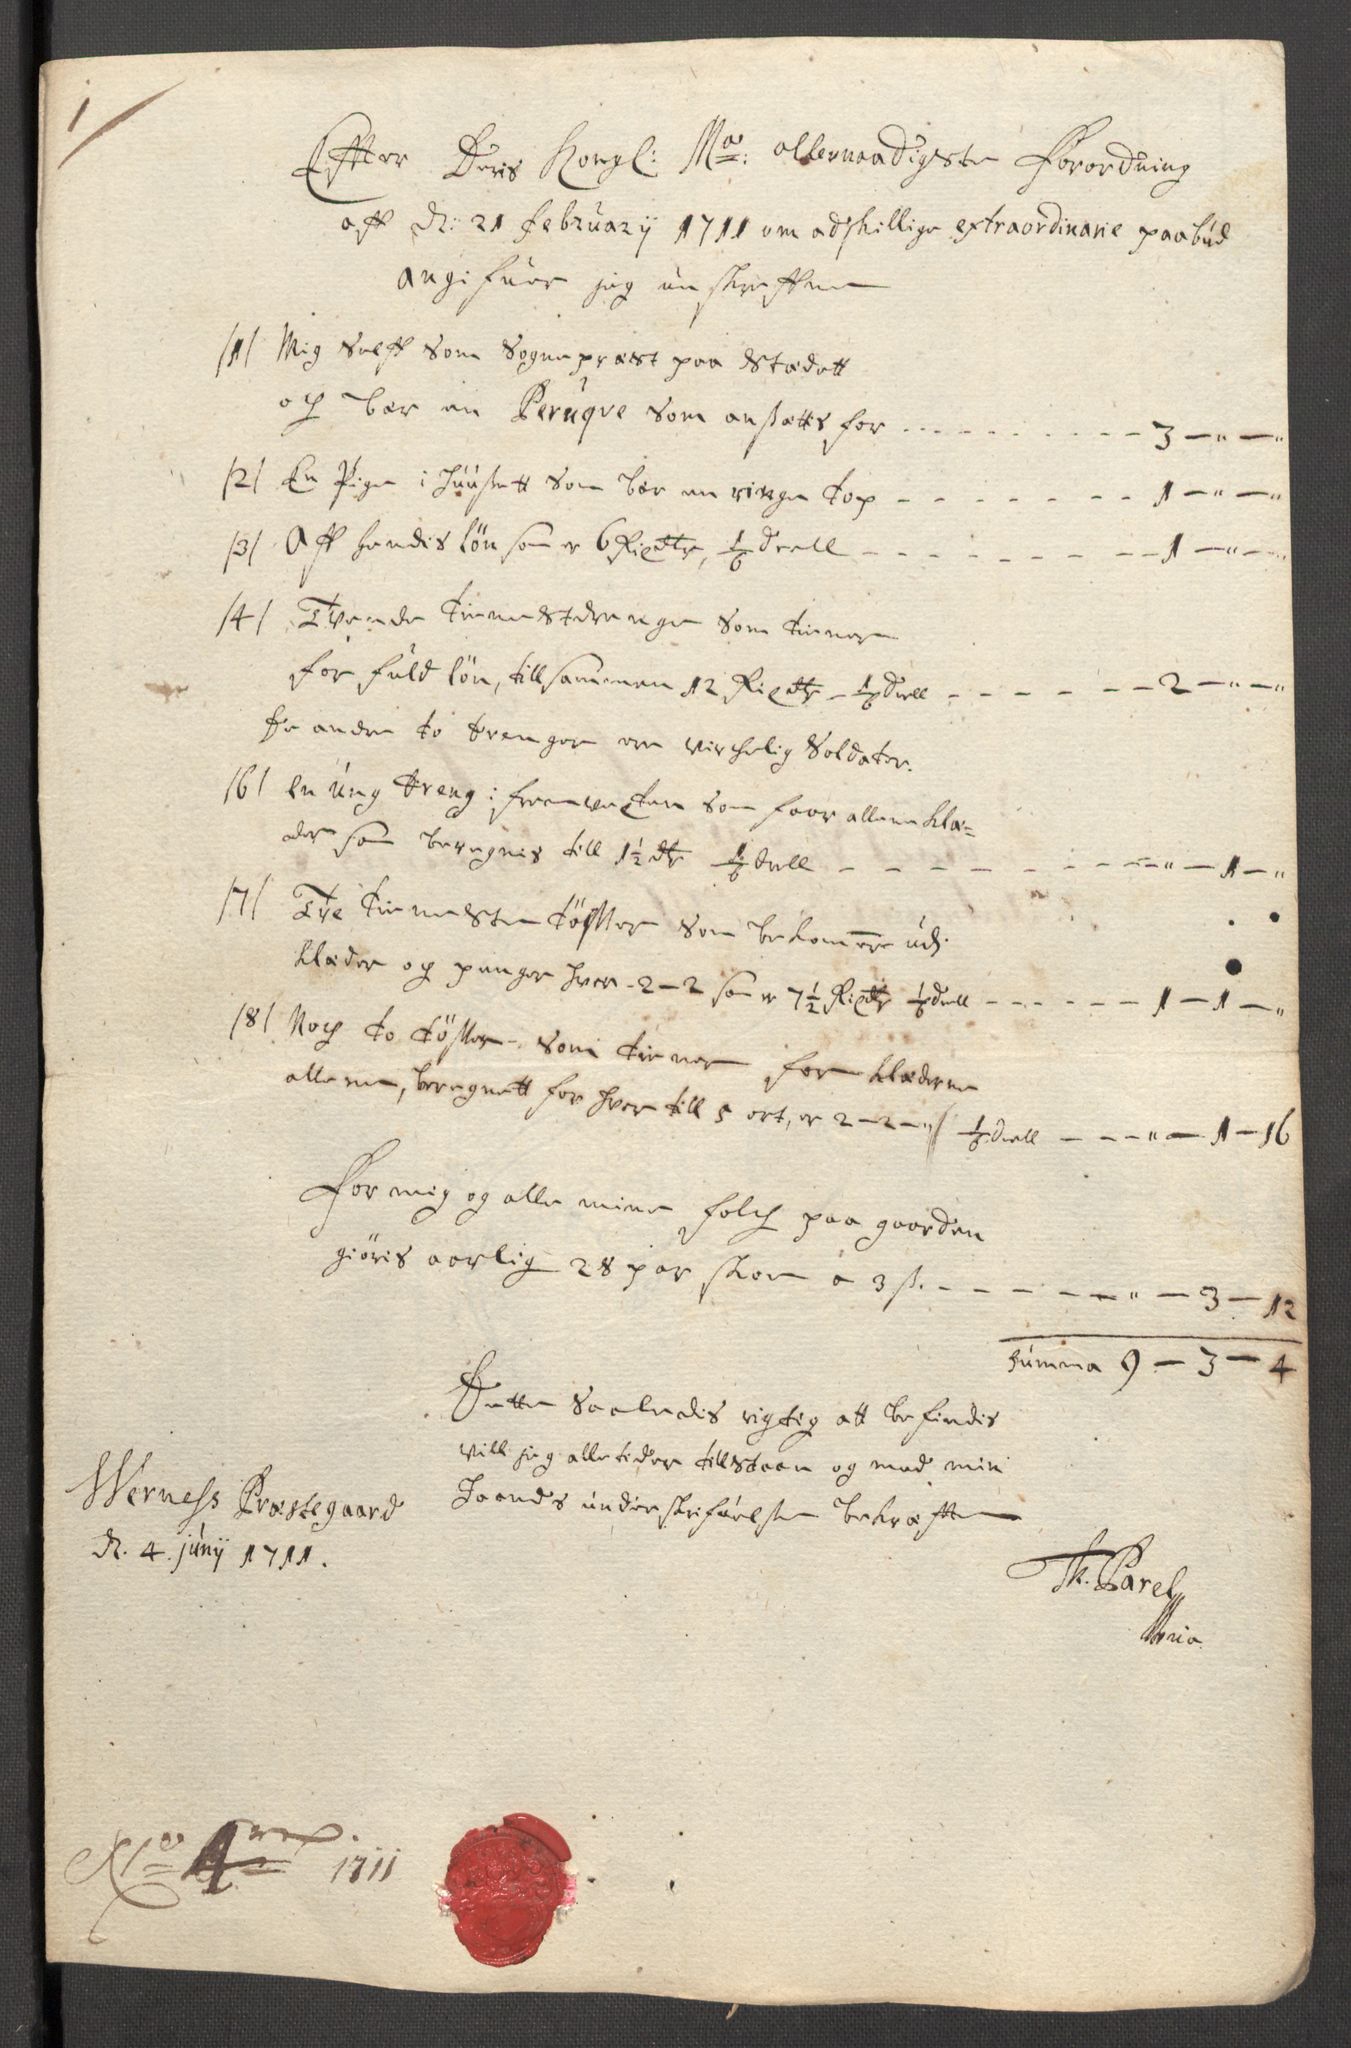 1
Effter Deris Kongl: Ma: allernaadigste Forordning
aff d: 21 februarij 1711 om adskillige extraordinarie paabud
angifuer jeg
/1/ Mig Self som Sognepræst paa Stædett
och bær en Peruqve som ansættes for - - - 3 - " - "
/2/ En Pige i Huusett som bær en ringe top - - - 1 - " - "
/3/ Aff hendis løn som er 6 Rixdlr, 1/6 deell - - - 1 - " - "
/4/ Tvende tieniste drenge som tiener
for fuld løn, tillsammen 12 Rixdlr - 1/6 deell - - - 2 - " - "
de andre to drenger ere virchelig Soldater.
/6/ En ung dreng i fremvexten som faar allene klæ-
der som beregnis till 1 1/2 dlr 1/6 deell - - - " - 1 - "
/7/ Tre tieneste tøsser som bekommer udj
klæder og penger hver - 2 - 2 som er 7 1/2 Rixdlr 1/6 deell - - - 1 - 1 - "
/8/ Noch to tøsser som tiener for klæderne
allene, beregnett for hver till 5 ort, er 2 - 2 - " 1/6 deell - - - " - 1 - 16
For mig og alle mine folch paa gaarden
giøris aarlig 28 par skoe a 3 s. - - - " - 3 - 12
Summa 9 - 3 - 4
Dette saaledis rigtig att befindis
vill jeg alletider tillstaae og med min
Haands underskrifuelse bekræfte
Werness Præstegaard
d. 4. junij 1711.
Th. Parel
mria
No 1 1711